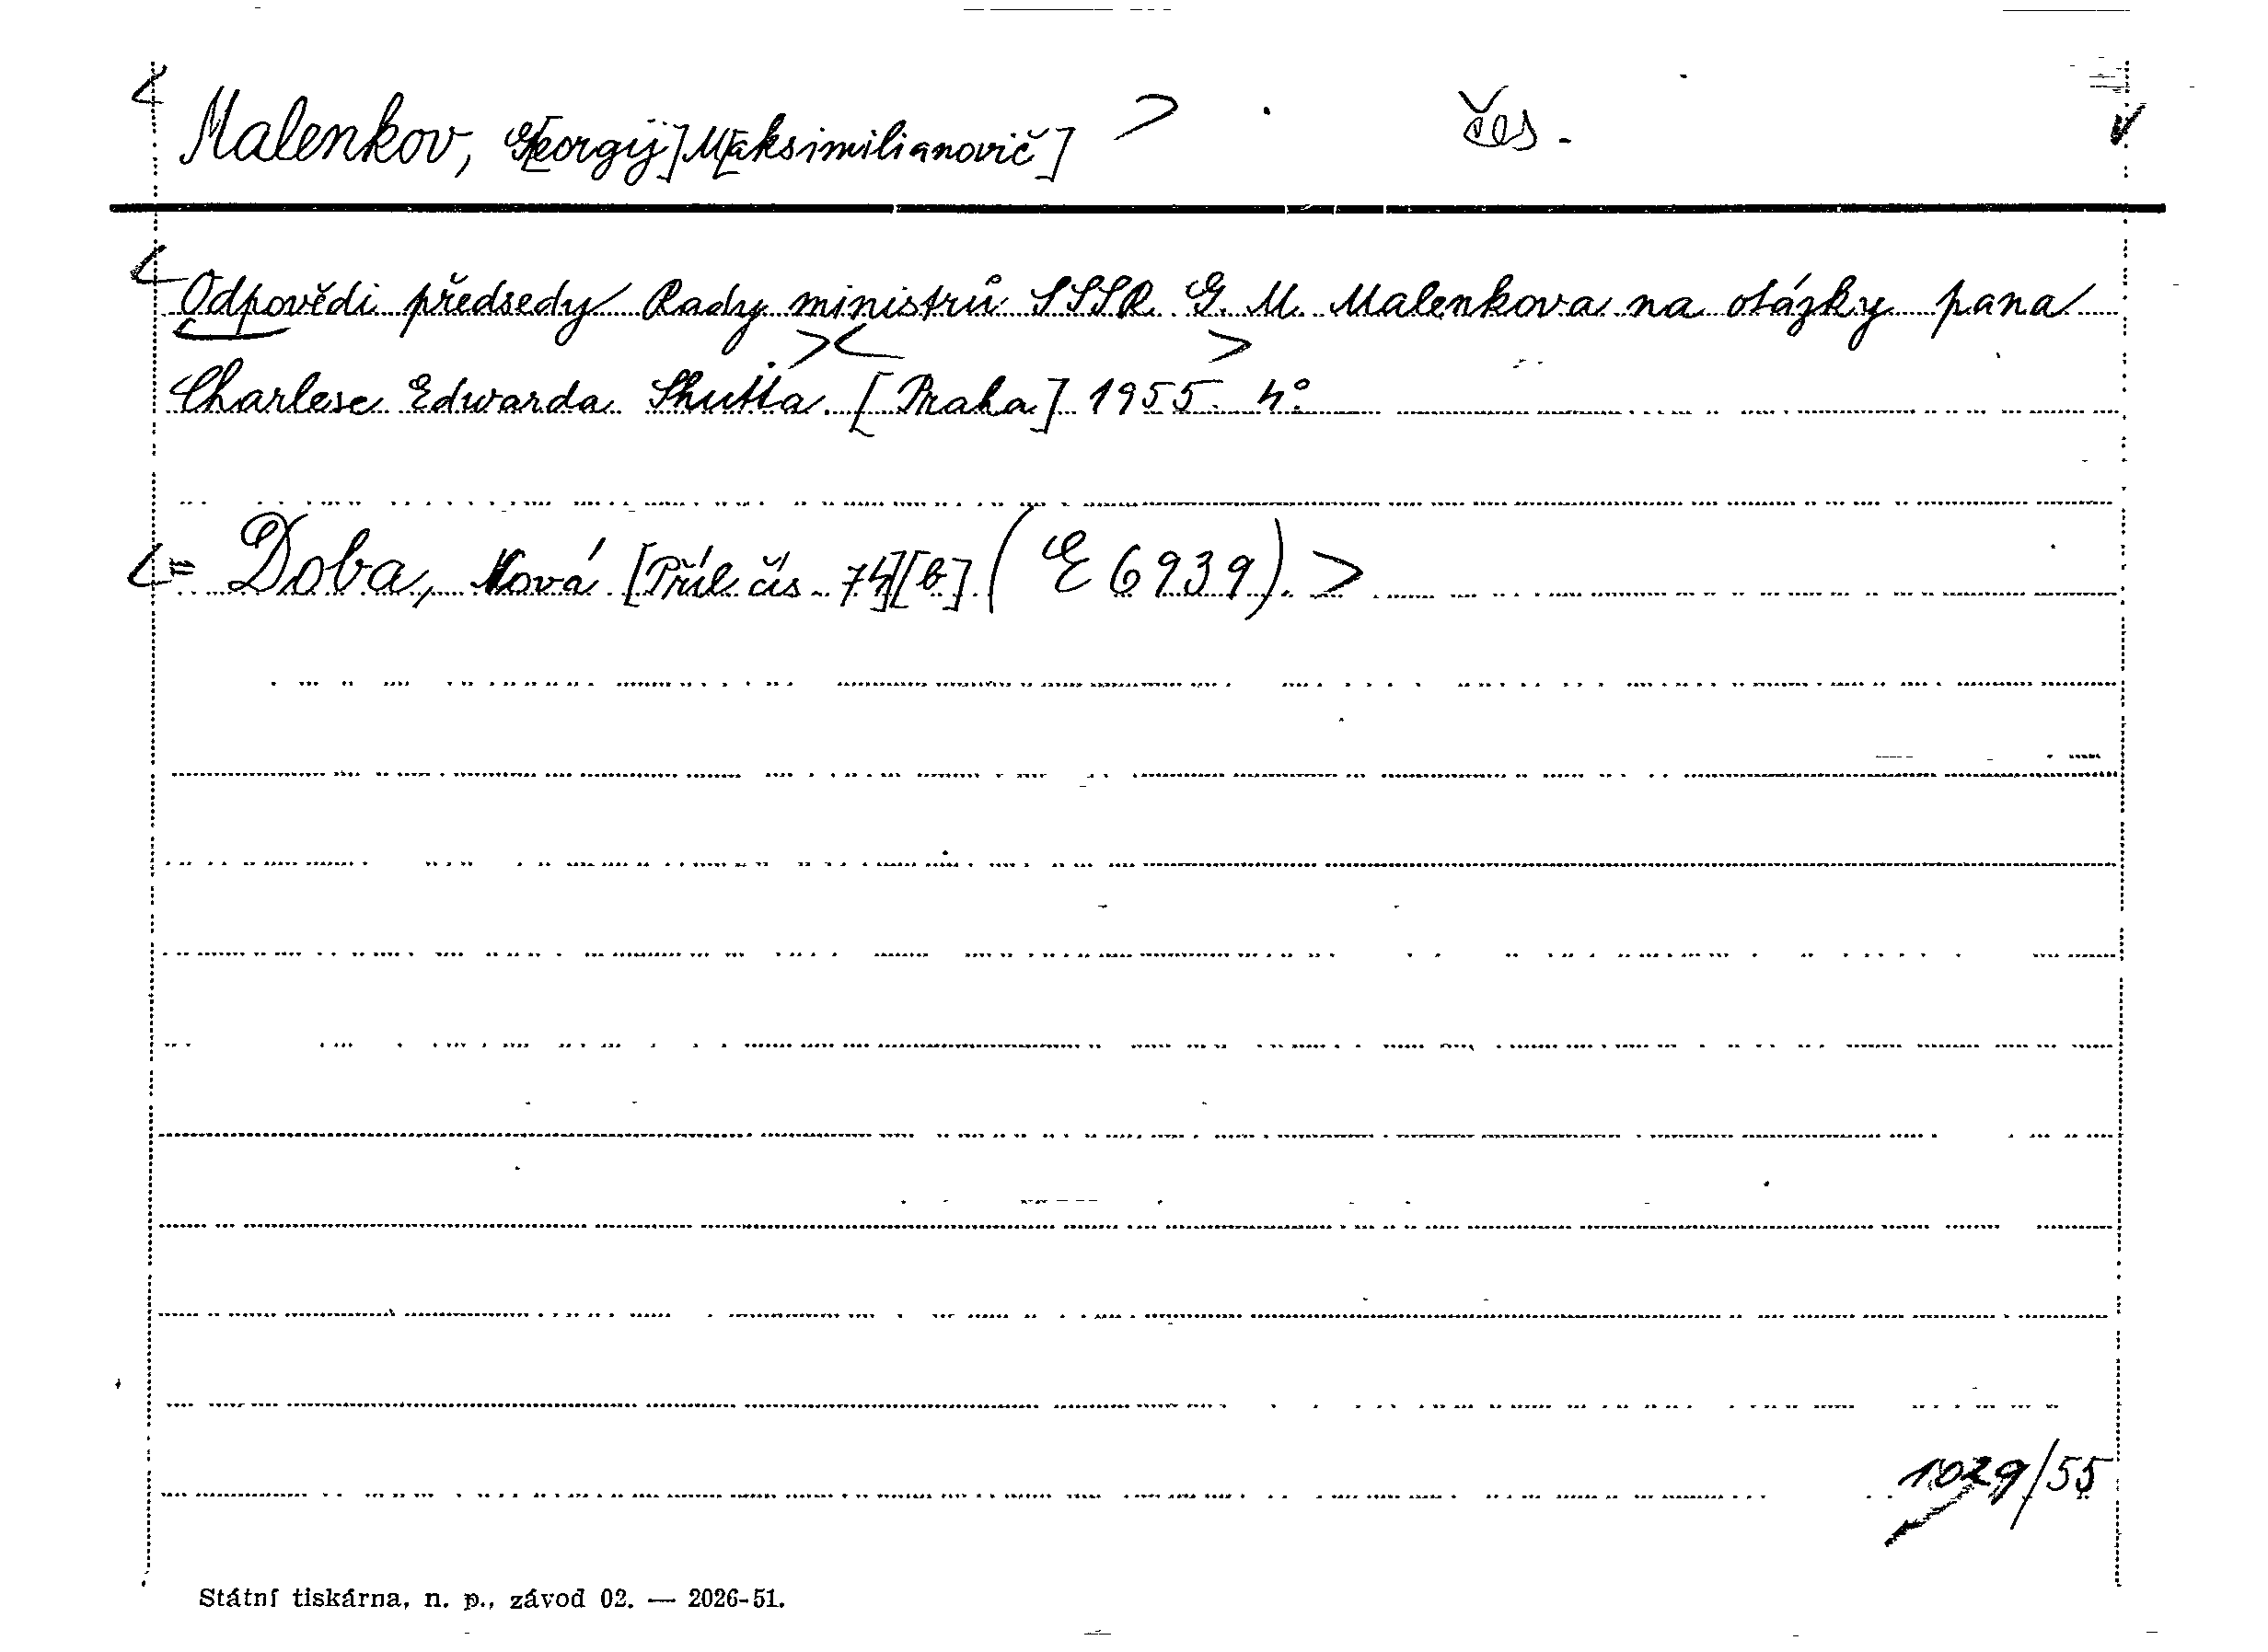 < Malenkov, G[eorgij] M[aksimilianovič] > . čes.
< Odpovědi předsedy Rady ministrů SSSR G. M. Malenkova na otázky pana
Charlese Edwarda Shutta. > < [Praha] > 1955. 4°
< = Doba, Nová [Příl. čís. 74][b]. (E 6939). >
1029/55
Státní tiskárna, n. p., závod 02. — 2026-51.